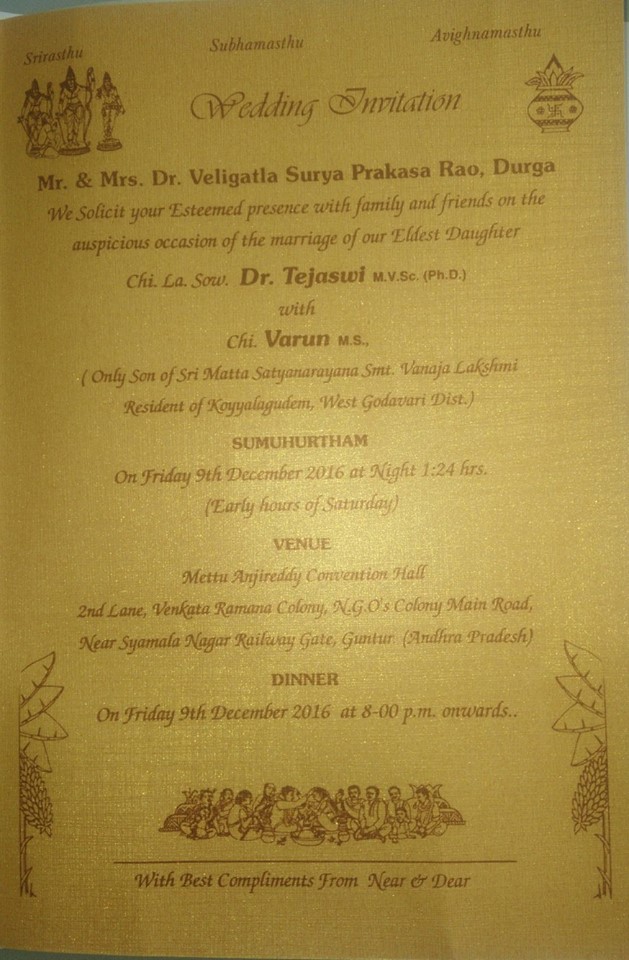 Srirasthu Subhamasthu Avighnamasthu
Wedding Invitation
Mr. & Mrs. Dr. Veligatla Surya Prakasa Rao, Durga
We Solicit your Esteemed presence with family and friends on the
auspicious occasion of the marriage of our Eldest Daughter
Chi. La. Sow. Dr. Tejaswi M.V.Sc. (Ph.D.)
with
Chi. Varun M.S.,
( Only Son of Sri Matta Satyanarayana Smt. Vanaja Lakshmi
Resident of Koyyalagudem, West Godavari Dist.)
SUMUHURTHAM
On Friday 9th December 2016 at Night 1:24 hrs.
(Early hours of Saturday)
VENUE
Mettu Anjireddy Convention Hall
2nd Lane, Venkata Ramana Colony, N.G.O's Colony Main Road,
Near Syamala Nagar Railway Gate, Guntur (Andhra Pradesh)
DINNER
On Friday 9th December 2016 at 8-00 p.m. onwards..
With Best Compliments From Near & Dear